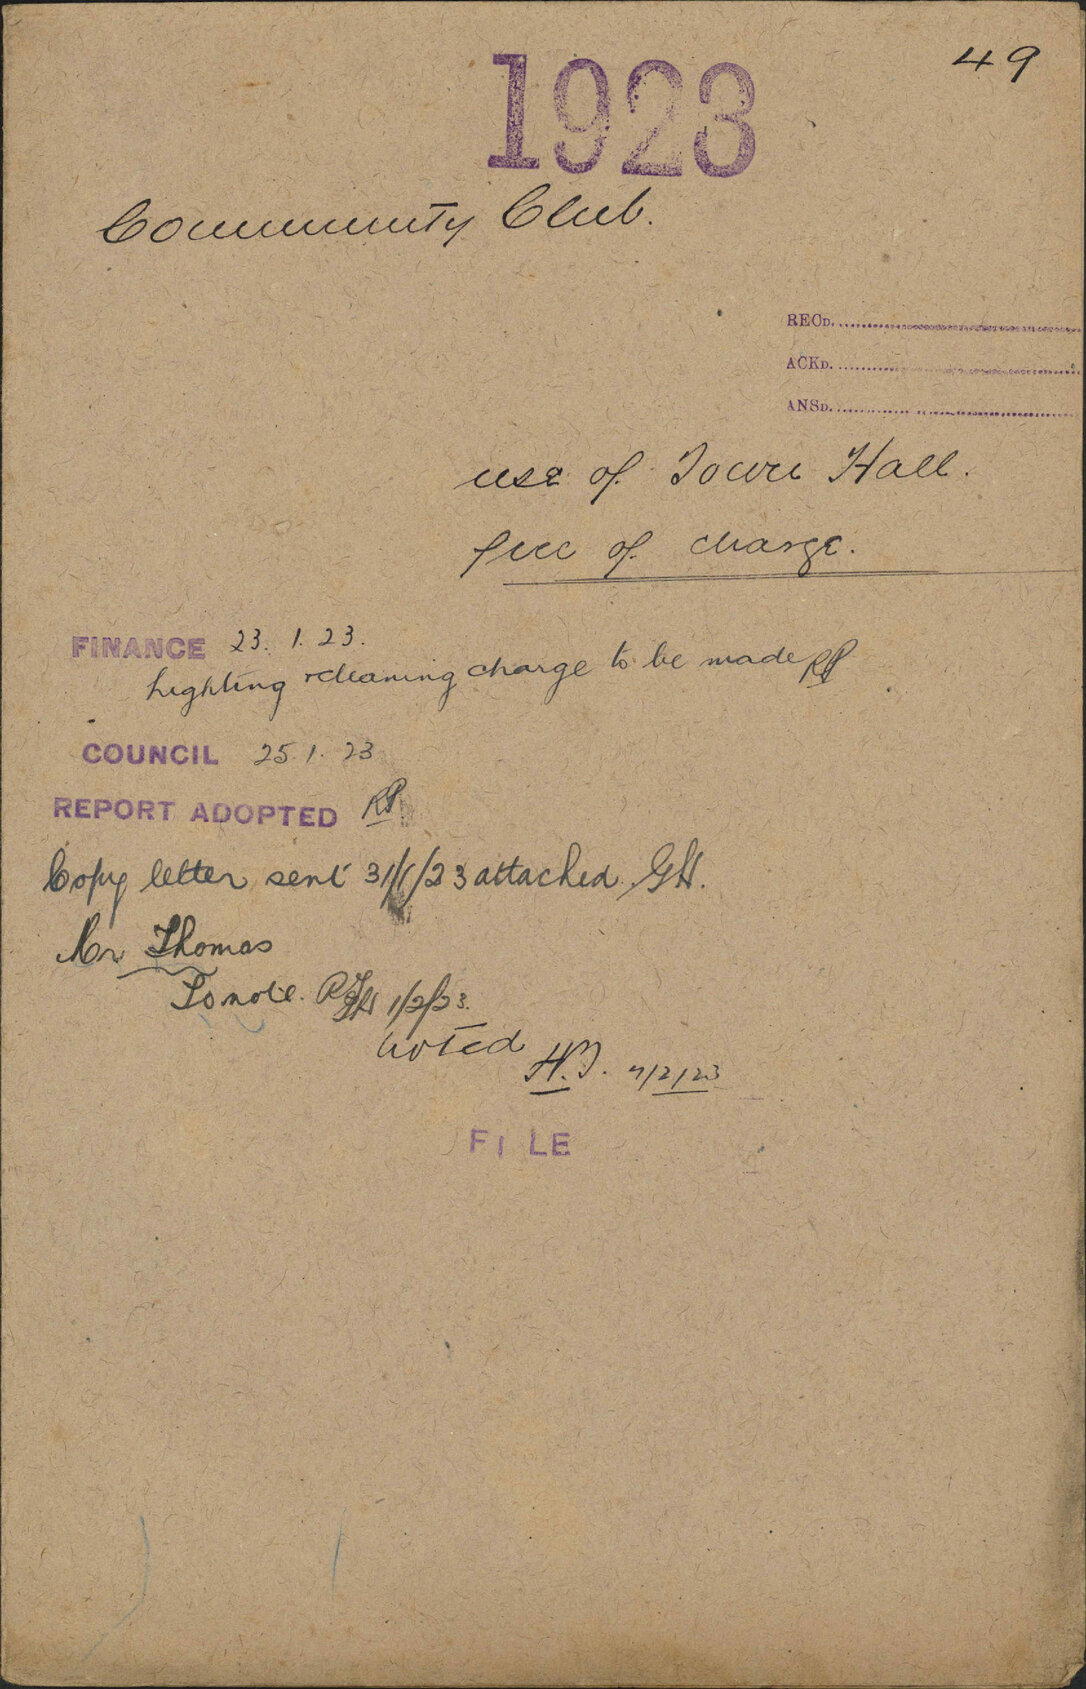 49
1923
Community Club.
RECD.
ACKD.
ANSD.
use of Town Hall.
free of charge.
FINANCE 23.1.23.
Lighting & cleaning charge to be made RP
COUNCIL 25.1.23
REPORT ADOPTED RP
Copy letter sent 31/1/23 attached. GH.
Mr Thomas
To note. 1/2/23.
noted
H.T. /2/23
FILE